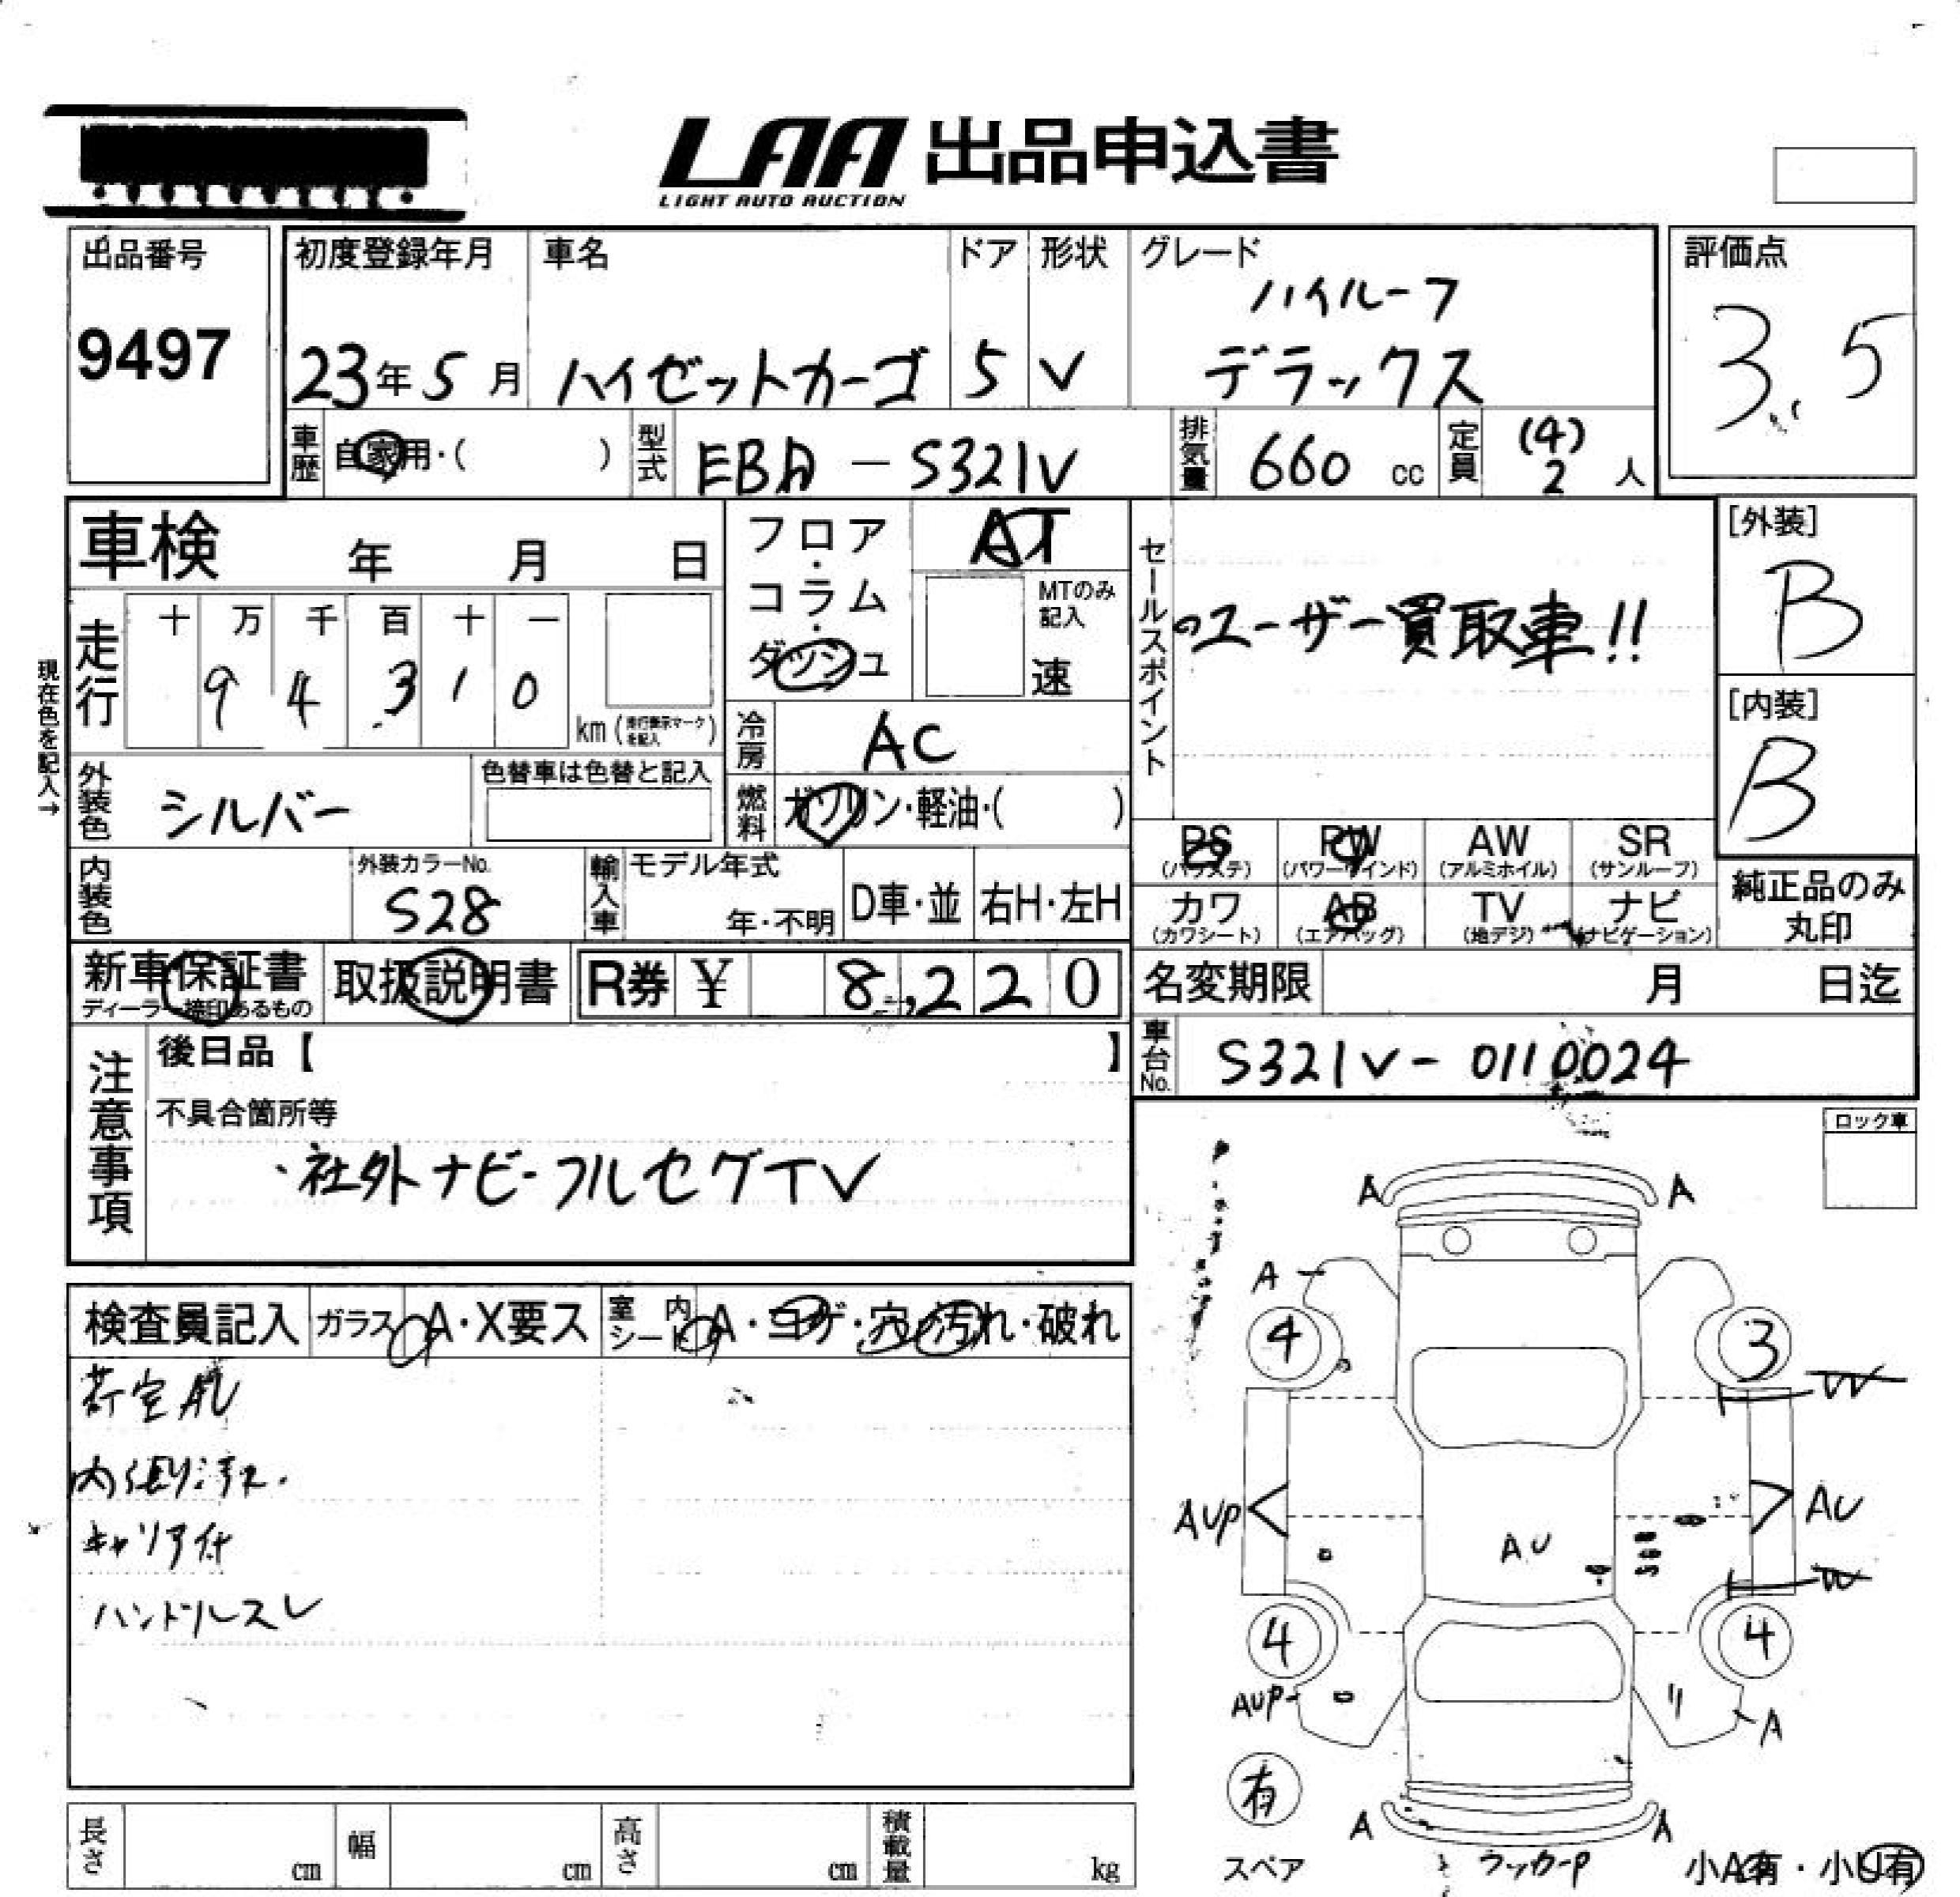 LAA 出品申込書
LIGHT AUTO AUCTION
出品番号
9497
初度登録年月
23年5月
車名
ハイゼットカーゴ
ドア
5
形状
V
グレード
ハイルーフ
デラックス
評価点
3.5
車歴
自家用・( )
型式
EBD - S321V
排気量
660 cc
定員
(4)
2 人
車検 年 月 日
走行
十 万 千 百 十 一
9 4 3 1 0
km (走行表示マークを記入)
現在色を記入→
フロア・コラム・ダッシュ
AT
MTのみ
記入
速
冷房
AC
燃料
ガソリン・軽油・( )
セールスポイント
のユーザー買取車!!
[外装]
B
[内装]
B
外装色
シルバー
色替車は色替と記入
内装色
外装カラーNo.
S28
輸入車
モデル年式
年・不明
D車・並
右H・左H
PS
(パワステ)
PW
(パワーウインド)
AW
(アルミホイル)
SR
(サンルーフ)
カワ
(カワシート)
AB
(エアバッグ)
TV
(地デジ)
ナビ
(ナビゲーション)
純正品のみ
丸印
新車保証書
ディーラー捺印あるもの
取扱説明書
R券 ¥ 8,220
名変期限 月 日迄
車台No.
S321V - 0110024
注意事項
後日品【 】
不具合箇所等
・社外ナビ・フルセグTV
ロック車
検査員記入
ガラス A・X要ス
室内シート A・コゲ・穴・汚れ・破れ
荷室AU
内張り汚れ.
キャリア付
ハンドルスレ
A A
A
4 3
W
AUP AU
AU
W
4 4
AUP
A
有
スペア
A A
ラッカーP
小A有・小U有
長さ cm
幅 cm
高さ cm
積載量 kg